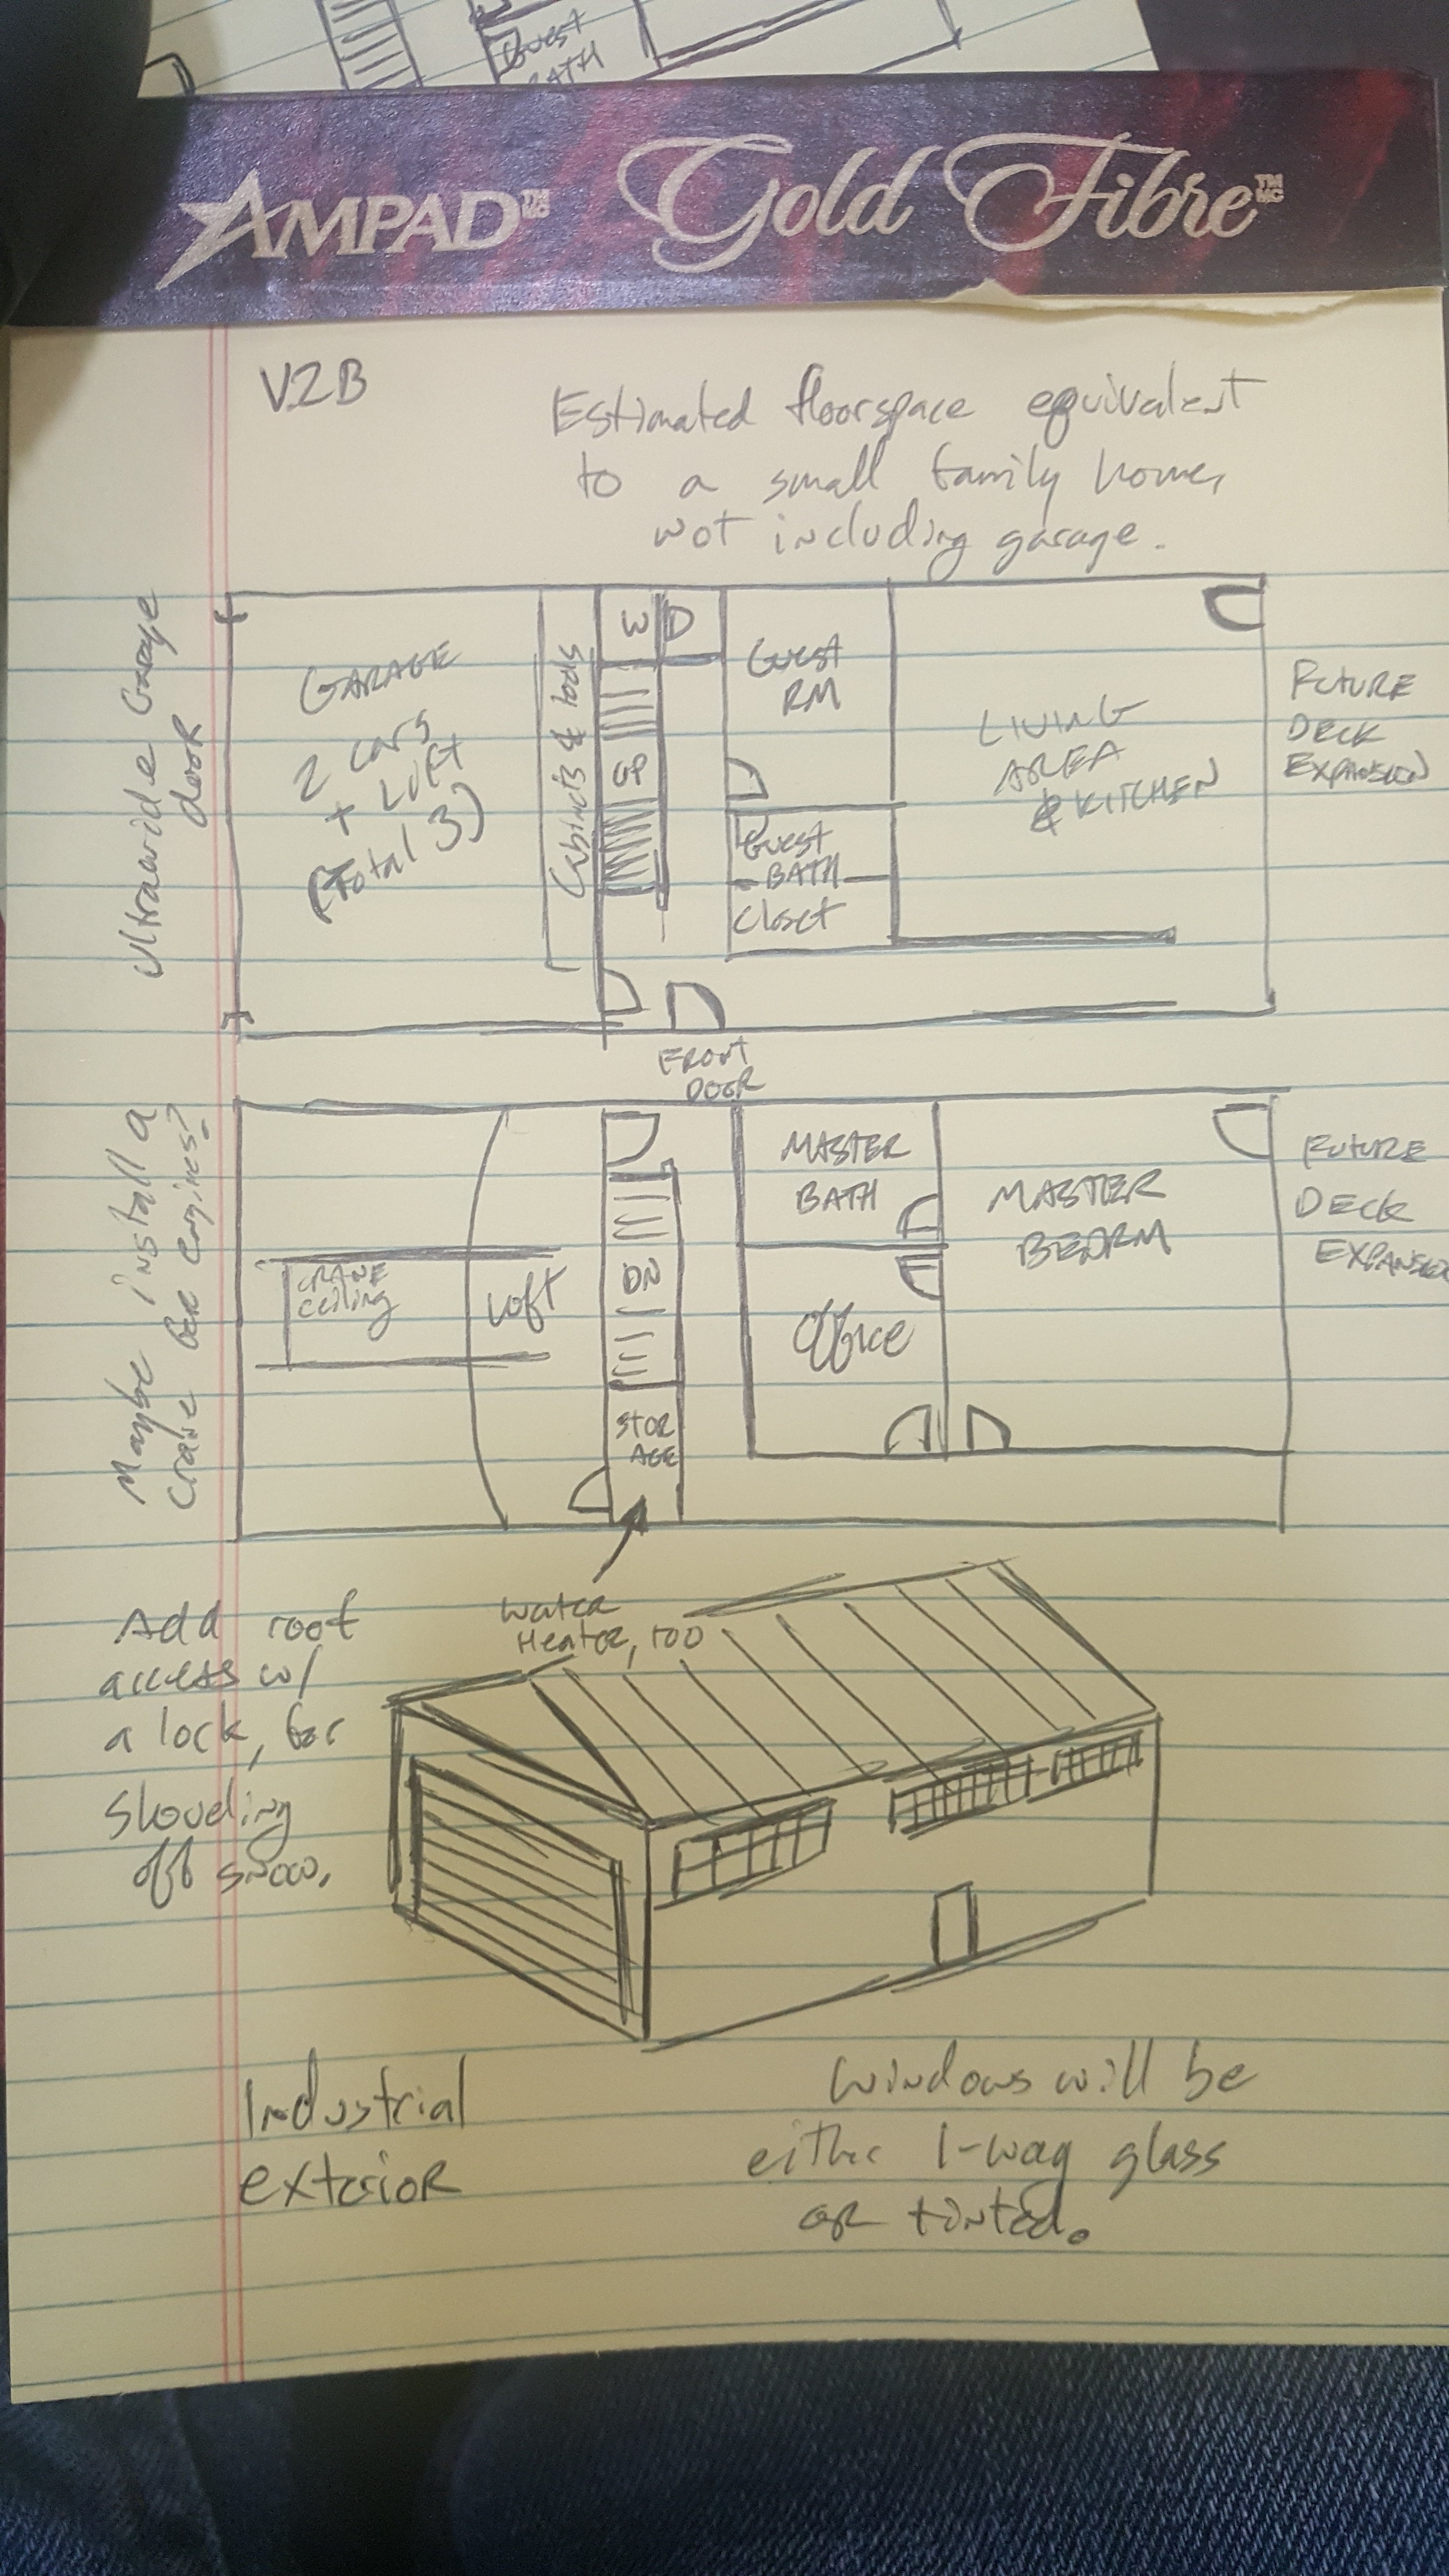 Guest
BATH
AMPAD™ Gold Fibre™
MC
MC
V2B
Estimated floorspace equivalent
to a small family home,
not including garage.
Ultrawide Garage
door
GARAGE
2 cars
+ Loft
(Total 3)
Cabinets & tools
W D
UP
Guest
RM
Guest
BATH
Closet
LIVING
AREA
& KITCHEN
FUTURE
DECK
EXPANSION
FRONT
DOOR
Maybe install a
crane for engines?
CRANE
Ceiling
Loft
DN
STOR
AGE
MASTER
BATH
Office
MASTER
BEDRM
FUTURE
DECK
EXPANSION
Water
Heater, too
Add roof
access w/
a lock, for
Shoveling
off snow.
Industrial
exterior
Windows will be
either 1-way glass
or tinted.